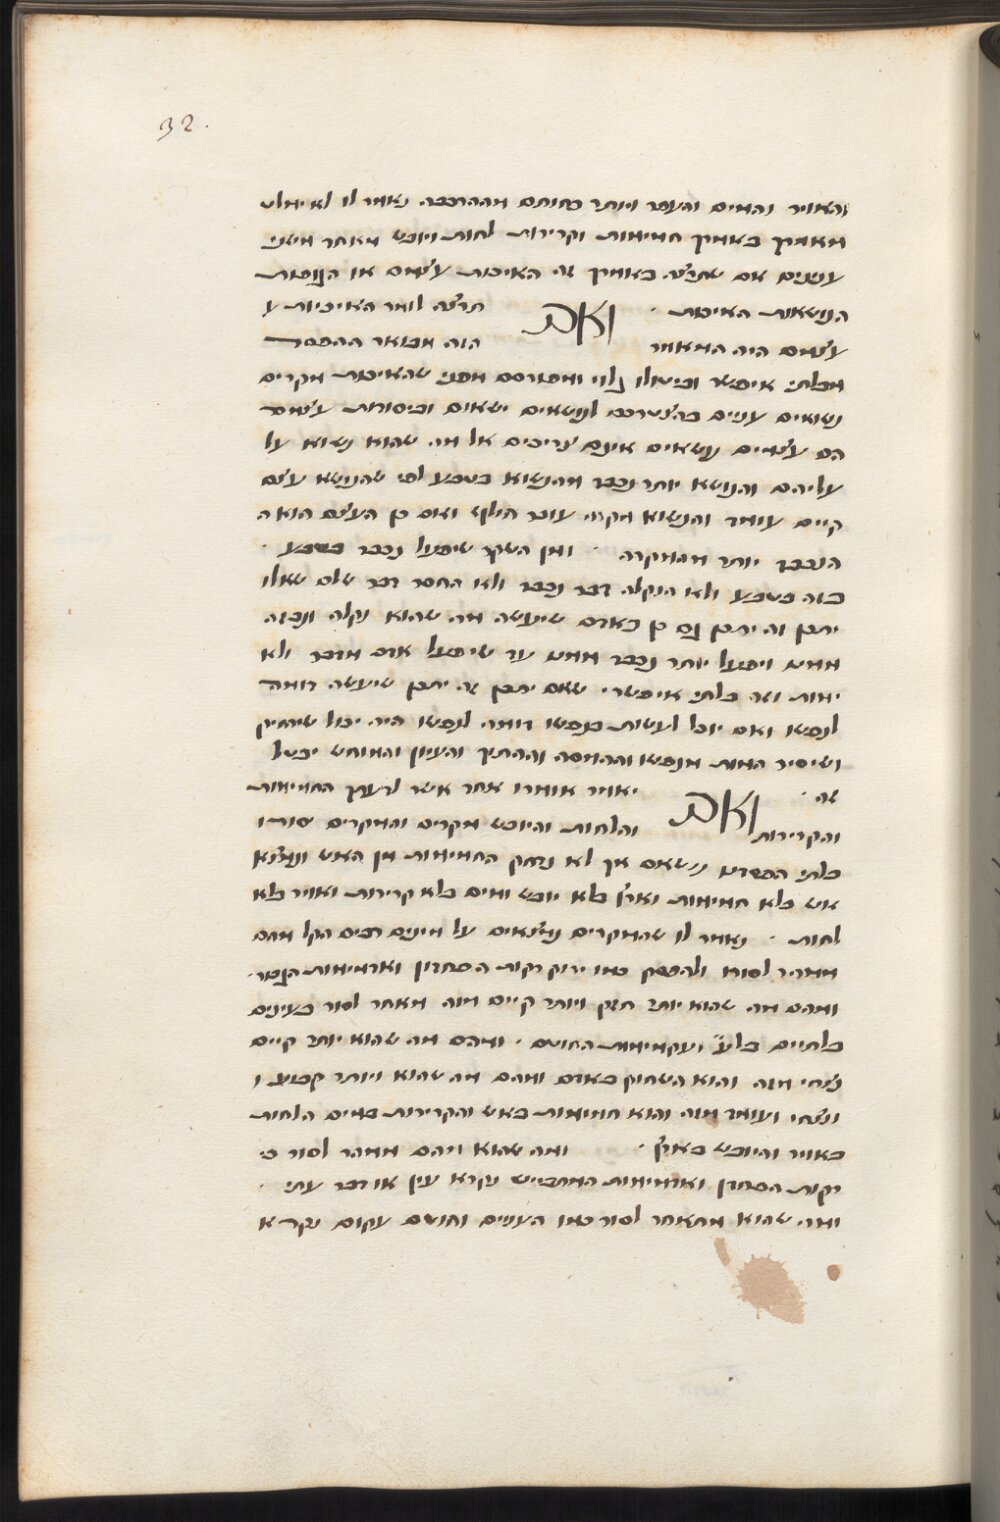 32.
והאויר והמים והעפר ויותר פחותם מההרכבה נאמר לו לא ימלט
מאמרך באמרך חמימות וקרירות לחות ויובש מאחר משני
ענינים אם שתרצה באמרך זה האיכות עצמם או הגופות
הנושאות האיכות . ואם תרצה לומר האיכיות ע
עצמם היה המאמר הזה מבואר ההפסד
מבלתי איפשר ובטולו גלוי ומפורסם מפני שהאיכות מקרים
נשואים עניים בהצטרכם לנושאים ישאום וביסודות עצמם
הם עצמיים נושאים אינם צריכים אל מה שהוא נשוא על
עליהם והנושא יותר נכבד מהנשוא בטבע לפי שהנושא עצם
קיים עומד והנשוא מקרה עובר חולף ואם כן העצם הוא ה
הנכבד יותר מהמקרה . ומן השקר שיפעל נכבד בטבע .
בזה בטבע ולא הנקלה דבר נכבד ולא החסר דבר שלם שאלו
יתכן זה יתכן גם כן באדם שיעשה מה שהוא נקלה ונבזה
ממנו ויפעל יותר נכבד ממנו עד שיפעל אדם מדבר ולא
ימות וזה בלתי איפשרי שאם יתכן זה יתכן שיעשה דומה
לנפשו ואם יוכל לעשות בנפשו דומה לנפשו היה יכול שיחזיק
ושיסיר המות מנפשו וההמסה וההתוך והעיון והמוחש יבטל
זה . ואם יאמר אומרו אחר אשר לדעתך החמימות
והקרירות והלחות והיובש מקרים והמקרים סורו
בלתי הפסד נושאם איך לא נרחק החמימות מן האש ונמצא
אש בלא חמימות וארץ בלא יובש ומים בלא קרירות ואויר בלא
לחות . נאמר לו שהמקרים נמצאים על מינים רבים הקל מהם
ממהר לסור ולהפסק כמו ירוקרקות הפחדון ואדמימות הנכלם
ומהם מה שהוא יותר חזק ויותר קיים מזה מאחר לסור בעינים
בלתיים ועקמימות החוטם . ומהם מה שהוא יותר קיים
נצחי מזה והוא השחוק באדם ומהם מה שהוא ויותר קבוע ו
ונצחי ועומד מזה והוא חמימות באש והקרירות במים הלחות
באויר והיובש בארץ . ומה שהוא מהם ממהר לסור כי
רקות הפחדן ואדמימות המתבייש נקרא עין או דבר עתי .
ומה שהוא מתאחר לסור כמו העינים וחוטם עקום נקרא